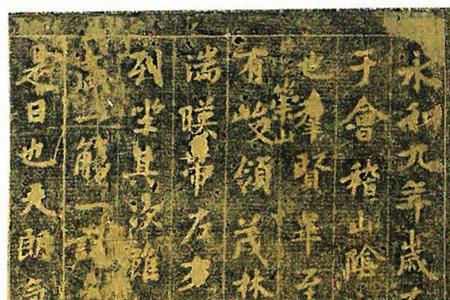 永和九年歲
于會稽山陰
也羣賢畢至
崇山
有峻領茂林
湍暎帶左右
列坐其次雖
盛一觴一詠
是日也天朗氣